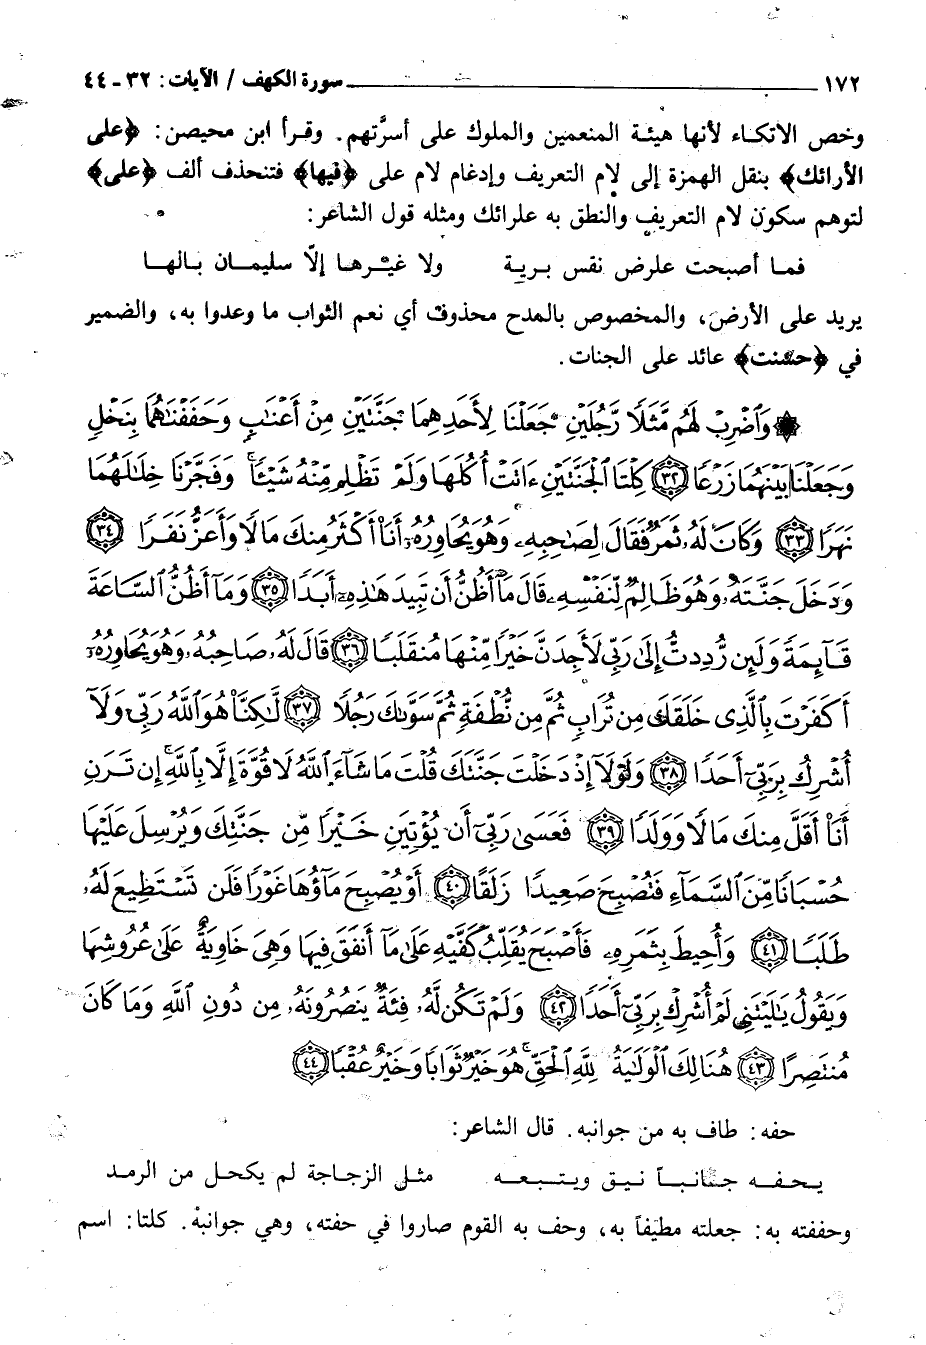 ١٧٢ سورة الكهف / الآيات: ٣٢ - ٤٤
وخص الاتكاء لأنها هيئة المنعمين والملوك على أسرَّتهم. وقرأ ابن محيصن: ﴿على
الأرائك﴾ بنقل الهمزة إلى لام التعريف وإدغام لام على ﴿فيها﴾ فتنحذف ألف ﴿على﴾
لتوهم سكون لام التعريف والنطق به علرائك ومثله قول الشاعر:
فما أصبحت علرض نفس برية ولا غيرها إلاّ سليمان بالها
يريد على الأرض، والمخصوص بالمدح محذوف أي نعم الثواب ما وعدوا به، والضمير
في ﴿حسنت﴾ عائد على الجنات.
۞ وَٱضْرِبْ لَهُم مَّثَلًا رَّجُلَيْنِ جَعَلْنَا لِأَحَدِهِمَا جَنَّتَيْنِ مِنْ أَعْنَٰبٍ وَحَفَفْنَٰهُمَا بِنَخْلٍ
وَجَعَلْنَا بَيْنَهُمَا زَرْعًا ﴿٣٢﴾ كِلْتَا ٱلْجَنَّتَيْنِ ءَاتَتْ أُكُلَهَا وَلَمْ تَظْلِم مِّنْهُ شَيْـًٔا ۚ وَفَجَّرْنَا خِلَٰلَهُمَا
نَهَرًا ﴿٣٣﴾ وَكَانَ لَهُۥ ثَمَرٌ فَقَالَ لِصَٰحِبِهِۦ وَهُوَ يُحَاوِرُهُۥٓ أَنَا۠ أَكْثَرُ مِنكَ مَالًا وَأَعَزُّ نَفَرًا ﴿٣٤﴾
وَدَخَلَ جَنَّتَهُۥ وَهُوَ ظَالِمٌ لِّنَفْسِهِۦ قَالَ مَآ أَظُنُّ أَن تَبِيدَ هَٰذِهِۦٓ أَبَدًا ﴿٣٥﴾ وَمَآ أَظُنُّ ٱلسَّاعَةَ
قَآئِمَةً وَلَئِن رُّدِدتُّ إِلَىٰ رَبِّي لَأَجِدَنَّ خَيْرًا مِّنْهَا مُنقَلَبًا ﴿٣٦﴾ قَالَ لَهُۥ صَاحِبُهُۥ وَهُوَ يُحَاوِرُهُۥٓ
أَكَفَرْتَ بِٱلَّذِي خَلَقَكَ مِن تُرَابٍ ثُمَّ مِن نُّطْفَةٍ ثُمَّ سَوَّىٰكَ رَجُلًا ﴿٣٧﴾ لَّٰكِنَّا۠ هُوَ ٱللَّهُ رَبِّي وَلَآ
أُشْرِكُ بِرَبِّيٓ أَحَدًا ﴿٣٨﴾ وَلَوْلَآ إِذْ دَخَلْتَ جَنَّتَكَ قُلْتَ مَا شَآءَ ٱللَّهُ لَا قُوَّةَ إِلَّا بِٱللَّهِ ۚ إِن تَرَنِ
أَنَا۠ أَقَلَّ مِنكَ مَالًا وَوَلَدًا ﴿٣٩﴾ فَعَسَىٰ رَبِّيٓ أَن يُؤْتِيَنِ خَيْرًا مِّن جَنَّتِكَ وَيُرْسِلَ عَلَيْهَا
حُسْبَانًا مِّنَ ٱلسَّمَآءِ فَتُصْبِحَ صَعِيدًا زَلَقًا ﴿٤٠﴾ أَوْ يُصْبِحَ مَآؤُهَا غَوْرًا فَلَن تَسْتَطِيعَ لَهُۥ
طَلَبًا ﴿٤١﴾ وَأُحِيطَ بِثَمَرِهِۦ فَأَصْبَحَ يُقَلِّبُ كَفَّيْهِ عَلَىٰ مَآ أَنفَقَ فِيهَا وَهِيَ خَاوِيَةٌ عَلَىٰ عُرُوشِهَا
وَيَقُولُ يَٰلَيْتَنِي لَمْ أُشْرِكْ بِرَبِّيٓ أَحَدًا ﴿٤٢﴾ وَلَمْ تَكُن لَّهُۥ فِئَةٌ يَنصُرُونَهُۥ مِن دُونِ ٱللَّهِ وَمَا كَانَ
مُنتَصِرًا ﴿٤٣﴾ هُنَالِكَ ٱلْوَلَٰيَةُ لِلَّهِ ٱلْحَقِّ ۚ هُوَ خَيْرٌ ثَوَابًا وَخَيْرٌ عُقْبًا ﴿٤٤﴾
حفه: طاف به من جوانبه. قال الشاعر:
يحفه جانباً نيق ويتبعه مثل الزجاجة لم يكحل من الرمد
وحففته به: جعلته مطيفاً به، وحف به القوم صاروا في حفته، وهي جوانبه. كلتا: اسم